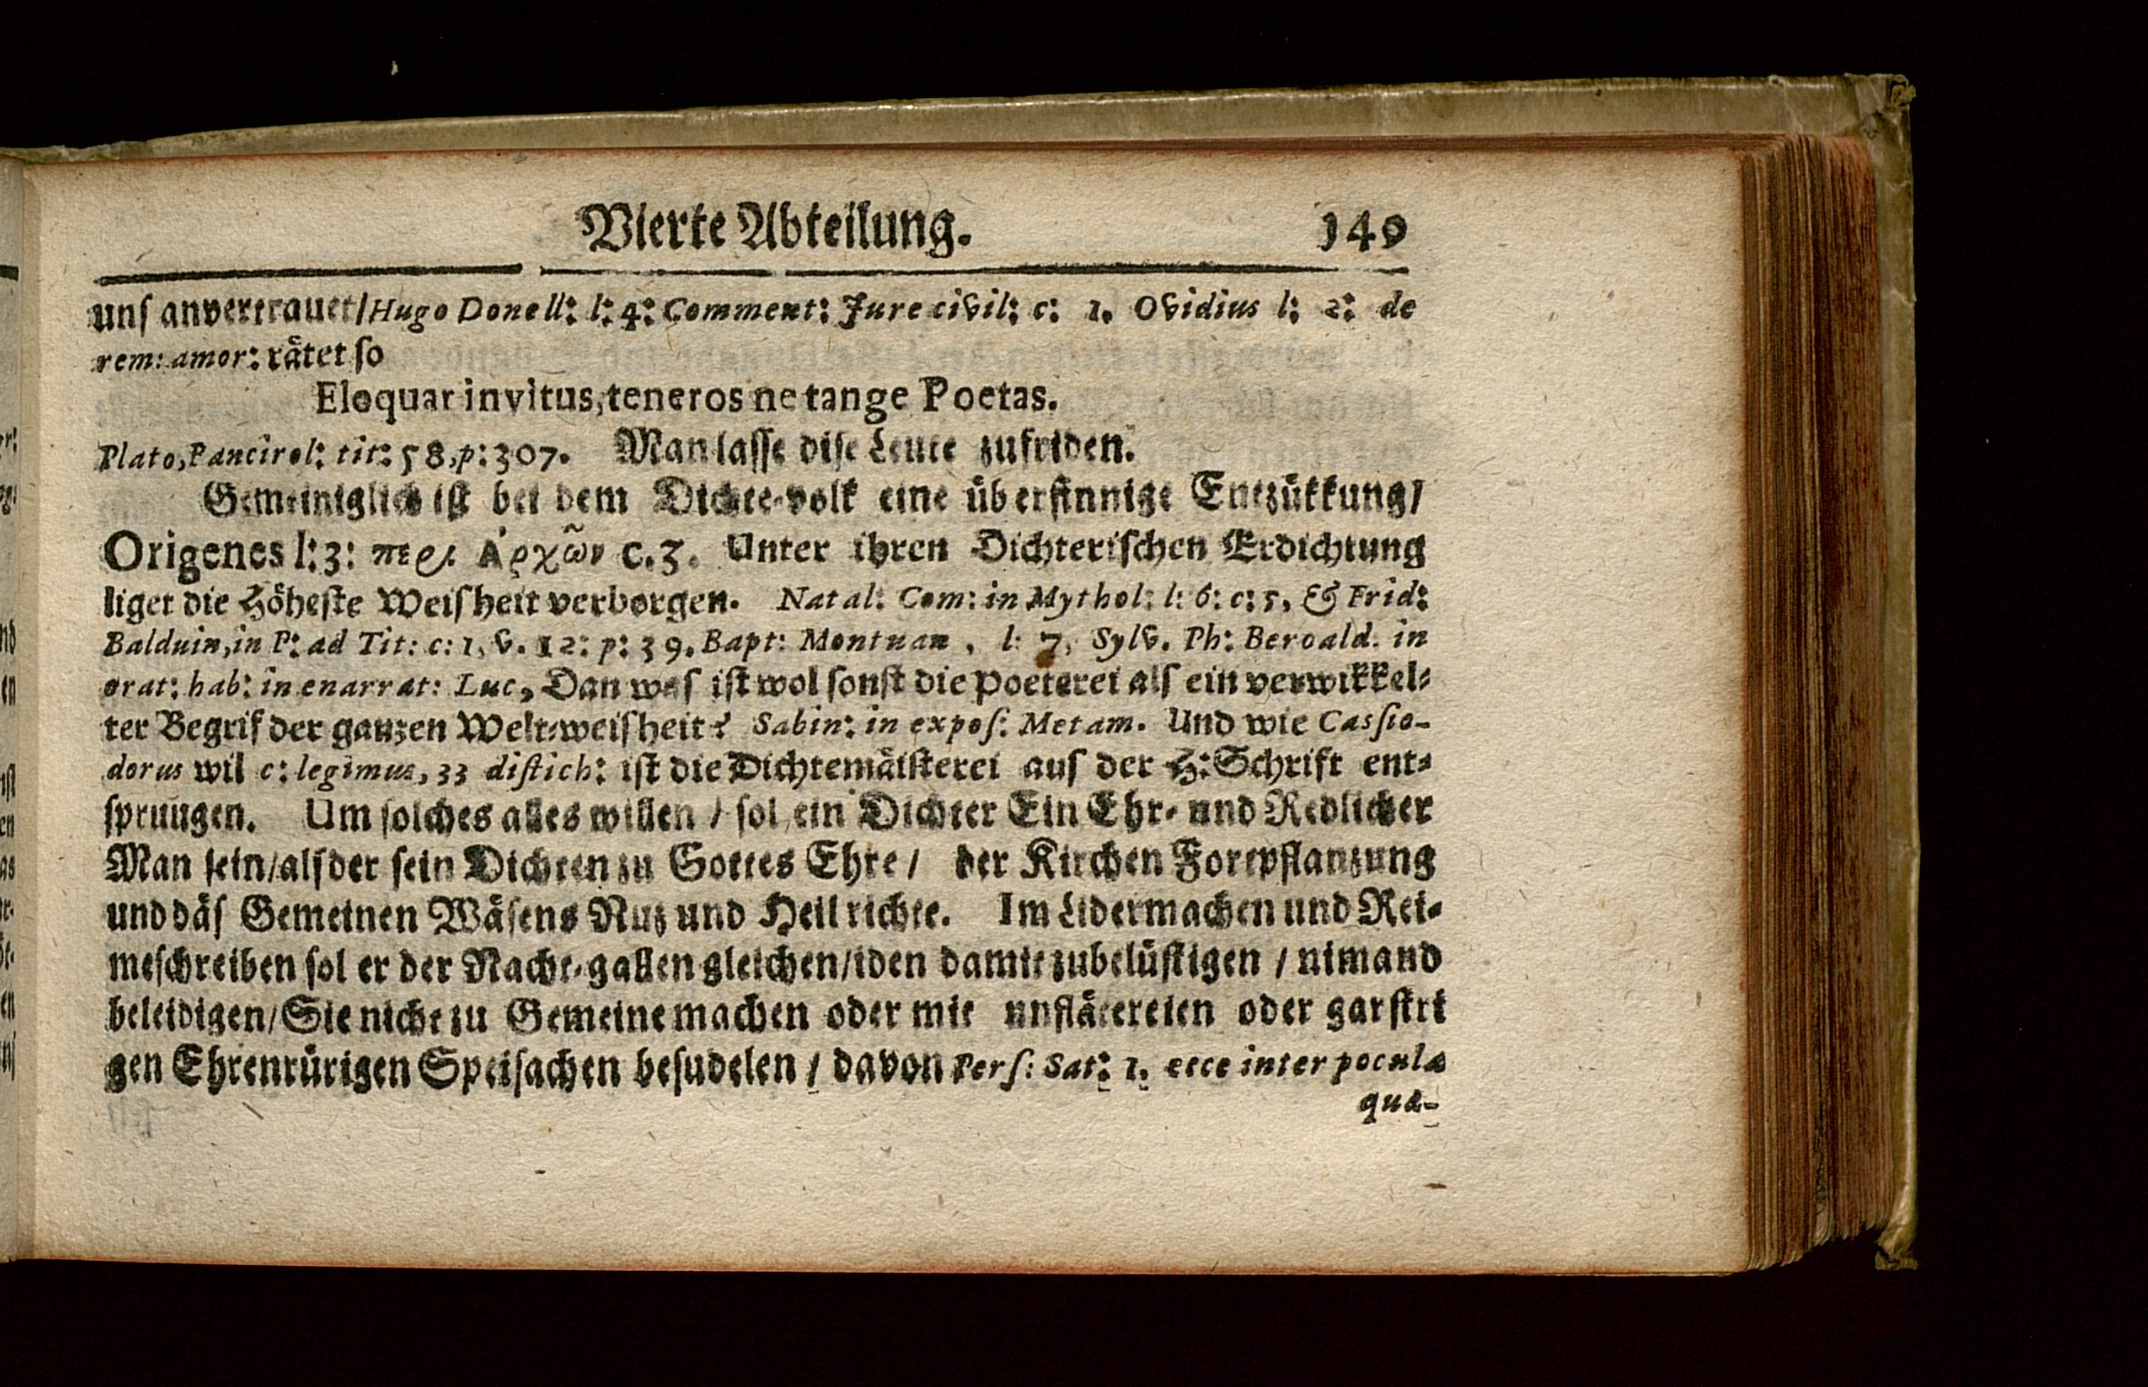 Vierte Abteilung. 149
uns anvertrauet/Hugo Donell: l: 4: Comment: Jure civil: c: 1. Ovidius l: 2: de
rem: amor: rätet so
Eloquar invitus, teneros ne tange Poetas.
Plato, Pancirol: tit: 58, p: 307. Man lasse dise Leute zufriden.
Gemeiniglich ist bei dem Dichte-volk eine übersinnige Entzükkung/
Origenes l: 3: περι Ἀρχῶν c. 3. Unter ihren Dichterischen Erdichtung
liget die Höheste Weisheit verborgen. Natal: Com: in Mythol: l: 6: c: 5, & Frid:
Balduin, in P: ad Tit: c: 1, v. 12: p: 39. Bapt: Montuan, l: 7, Sylv. Ph: Beroald. in
orat: hab: in enarrat: Luc, Dan was ist wol sonst die Poeterei als ein verwikkel-
ter Begrif der ganzen Welt-weisheit? Sabin: in expos: Metam. Und wie Cassio-
dorus wil c: legimus, 33 distich: ist die Dichtemäisterei aus der H: Schrift ent-
sprungen. Um solches alles willen / sol ein Dichter Ein Ehr- und Redlicher
Man sein/als der sein Dichten zu Gottes Ehre / der Kirchen Fortpflanzung
und däs Gemeinen Wäsens Nuz und Heil richte. Im Lidermachen und Rei-
meschreiben sol er der Nacht-gallen gleichen/iden damit zubelüstigen / nimand
beleidigen/Sie nicht zu Gemeine machen oder mit unflätereien oder garstri
gen Ehrenrürigen Speisachen besudelen / davon Pers: Sat: 1. ecce inter pocula
quæ-